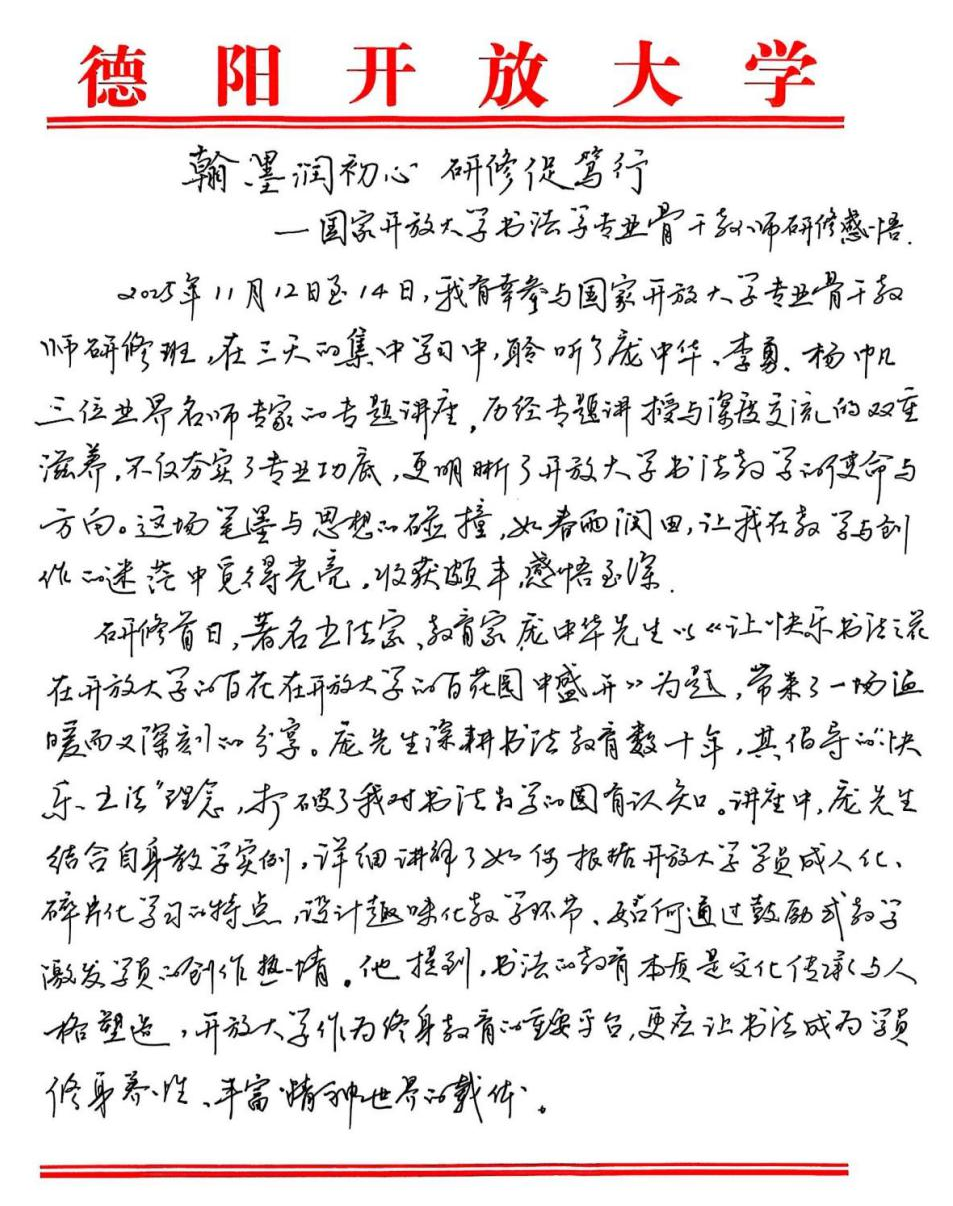 德阳开放大学
翰墨润初心 研修促笃行
—国家开放大学书法学专业骨干教师研修感悟.
2025年11月12日至14日,我有幸参与国家开放大学专业骨干教
师研修班,在三天的集中学习中,聆听了庞中华、李勇、杨帆
三位业界名师专家的专题讲座,历经专题讲授与深度交流的双重
滋养,不仅夯实了专业功底,更明晰了开放大学书法教学的使命与
方向。这场笔墨与思想的碰撞,如春雨润田,让我在教学与创
作的迷茫中觅得光亮,收获颇丰,感悟至深.
研修首日,著名书法家、教育家庞中华先生以《让快乐书法之花
在开放大学的百花在开放大学的百花园中盛开》为题,带来了一场温
暖而又深刻的分享。庞先生深耕书法教育数十年,其倡导的“快
乐书法”理念,打破了我对书法教学的固有认知。讲座中,庞先生
结合自身教学实例,详细讲解了如何根据开放大学学员成人化、
碎片化学习的特点,设计趣味化教学环节、如何通过鼓励式教学
激发学员的创作热情。他提到,书法的教育本质是文化传承与人
格塑造,开放大学作为终身教育的重要平台,更应让书法成为学员
修身养性、丰富精神世界的载体。